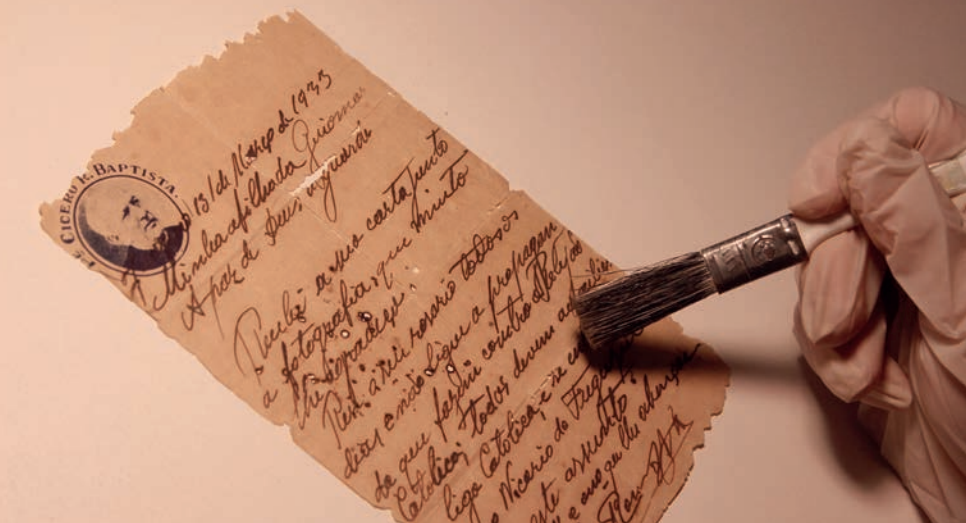 Pe. CICERO R. BAPTISTA.
13 de Março de 1933
Minha afilhada Guiomar
A paz de Deus nos guarde
Recebi a sua carta junto
a fotografia, que muito
lhe agradeço.
Reze a meu rosario todos os
dias e não ligue a propagan
da que fazem contra a
Catholica, todos devem
liga Catolica, e se en
o Vicario da Fregue
este assunto.
lhe abençoe